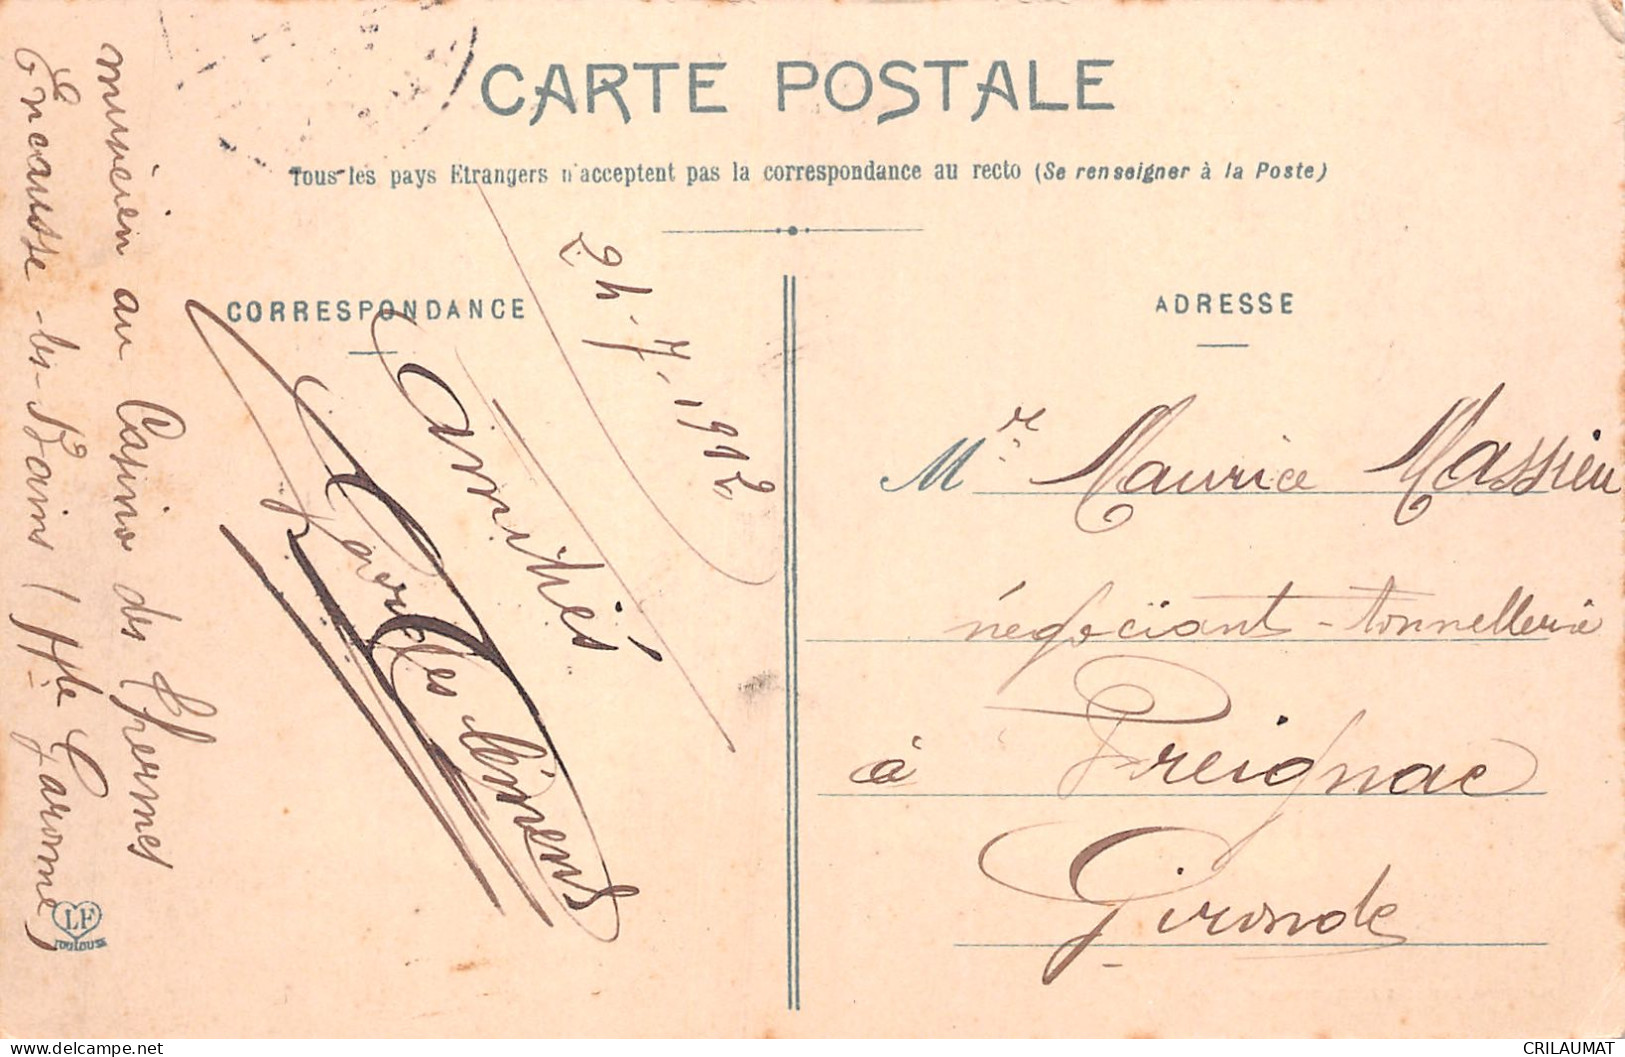 CARTE POSTALE
Tous les pays Etrangers n'acceptent pas la correspondance au recto (Se renseigner à la Poste)
CORRESPONDANCE
24-7-1912
Amitiés
musicien au Casino des Thermes
Encausse-les-Bains (Hte Garonne)
LF
TOULOUSE
ADRESSE
Mr Maurice Massieu
négociant-tonnellerie
à Preignac
Gironde
CRILAUMAT